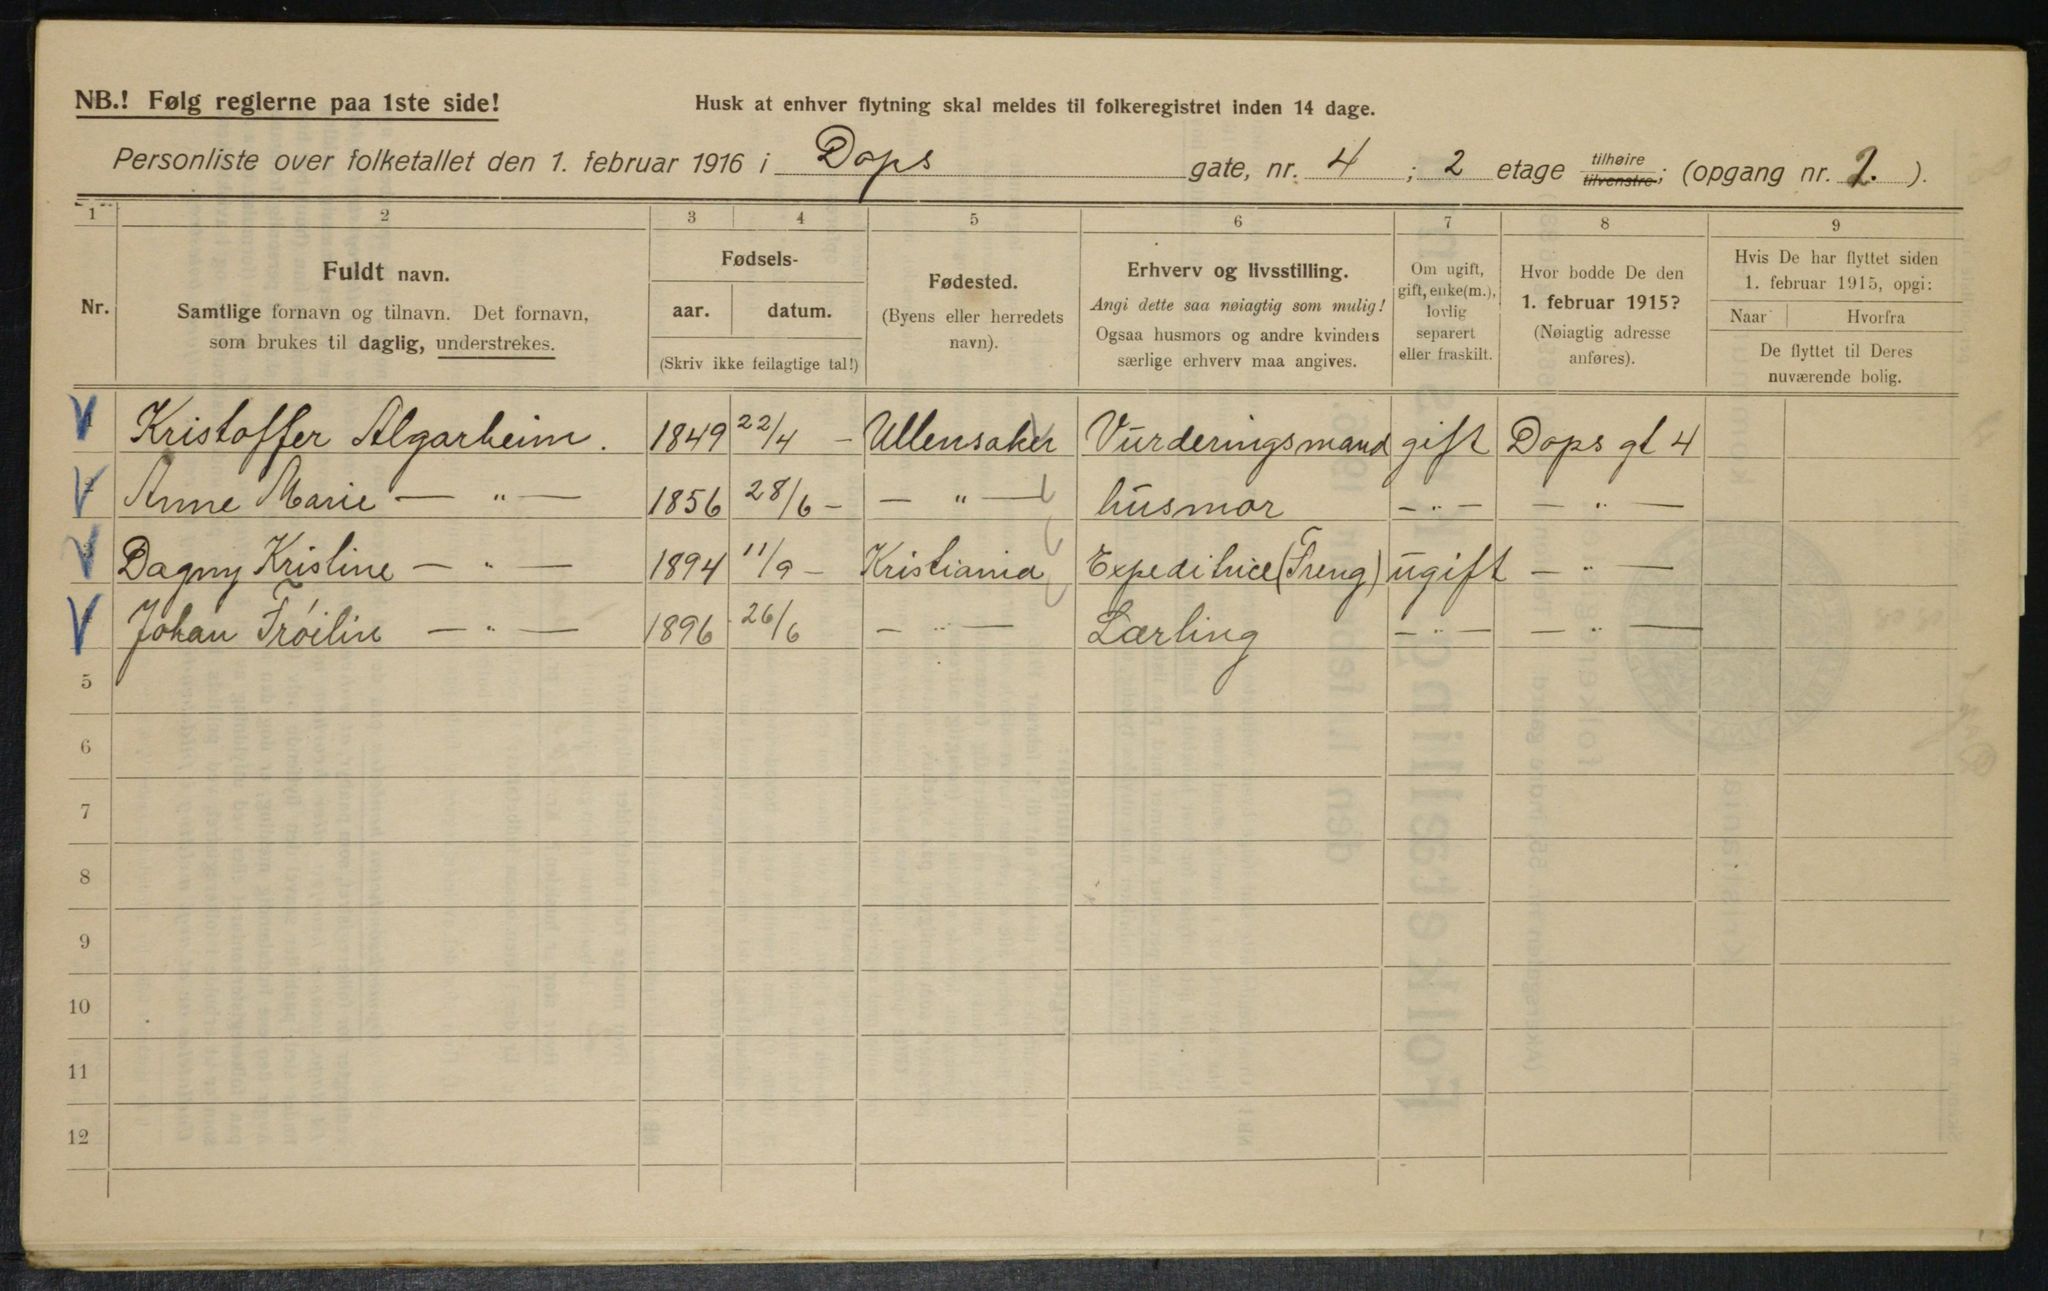 NB.! Følg reglerne paa 1ste side!
Husk at enhver flytning skal meldes til folkeregistret inden 14 dage.
Personliste over folketallet den 1. februar 1916 i Dops gate, nr. 4 ; 2 etage tilhøire tilvenstre; (opgang nr. 2. ).
1 2 3 4 5 6 7 8 9
Nr.
Fuldt navn.
Samtlige fornavn og tilnavn. Det fornavn,
som brukes til daglig, understrekes.
Fødsels-
aar. datum.
(Skriv ikke feilagtige tal!)
Fødested.
(Byens eller herredets
navn).
Erhverv og livsstilling.
Angi dette saa nøiagtig som mulig!
Ogsaa husmors og andre kvinders
særlige erhverv maa angives.
Om ugift,
gift, enke(m.),
lovlig
separert
eller fraskilt.
Hvor bodde De den
1. februar 1915?
(Nøiagtig adresse
anføres).
Hvis De har flyttet siden
1. februar 1915, opgi:
Naar Hvorfra
De flyttet til Deres
nuværende bolig.
Kristoffer Algarheim. 1849 22/4 – Ullensaker Vurderingsmand gift Dops gt 4
Anne Marie — " — 1856 28/6 – — " — husmor — " — — " —
Dagny Kristine — " — 1894 11/9 – Kristiania Expeditrice (Treng) ugift — " —
Johan Frøilin — " — 1896 26/6 — " — Lærling — " — — " —
5
6
7
8
9
10
11
12